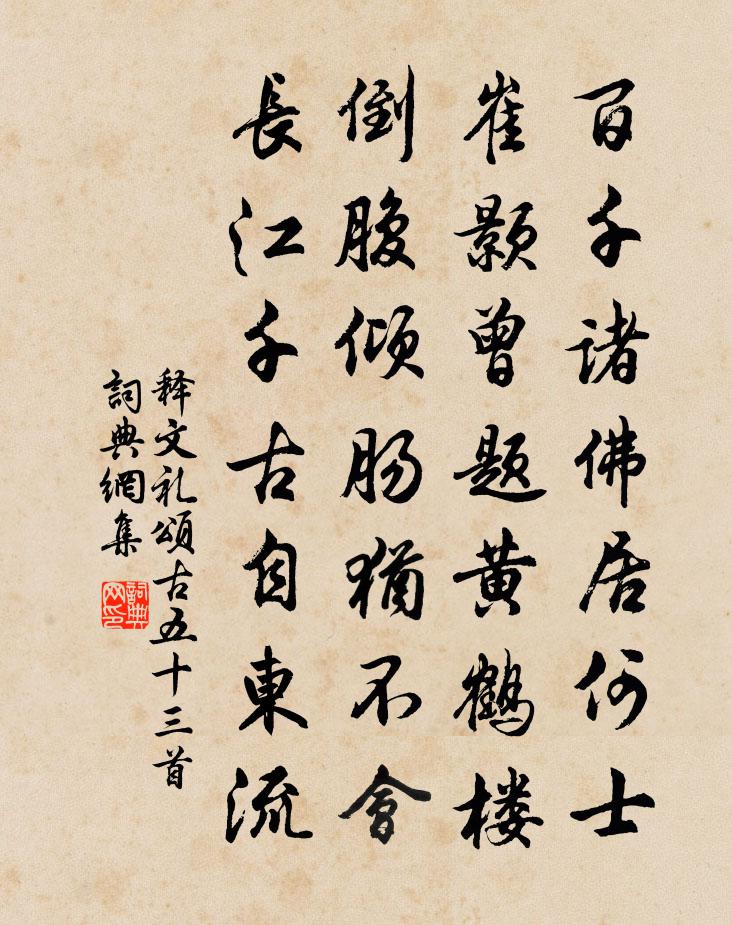 百千诸佛居何士
崔颢曾题黄鹤楼
倒腹倾肠犹不會
長江千古自東流
释文礼頌古五十三首
詞典網集
詞典网印